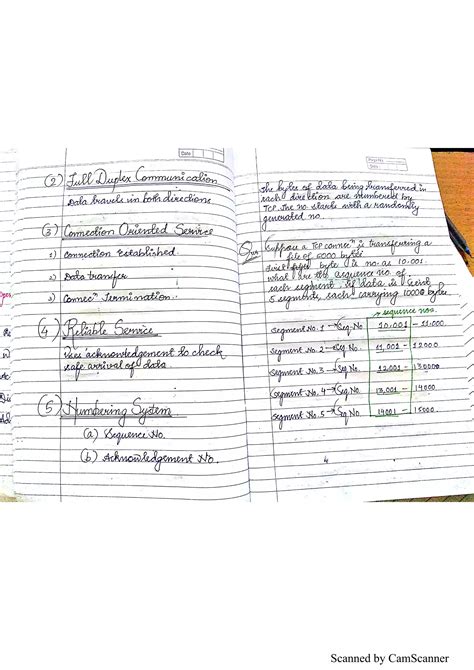 Date
(2) Full Duplex Communication
Data travels in both directions
(3) Connection Oriented Service
1) Connection Established.
2) Data transfer
3) Connecⁿ Termination.
(4) Reliable Service
Uses acknowledgement to check
safe arrival of data
(5) Numbering System
(a) Sequence No.
(b) Acknowledgement No.
Page No.
Date
The bytes of data being transferred in
each direction are numbered by
TCP. The no starts with a randomly
generated no.
Suppose a TCP connecⁿ is transferring a
file of 5000 bytes.
byte is no. as 10.001.
what are the sequence no. of
each segment if data is sent
5 segments, each carrying 1000 bytes
sequence nos.
Segment No. 1 → Seq. No. 10,001 - 11.000
Segment No. 2 → Seq. No. 11,001 - 12000
Segment No. 3 → Seq No. 12001 - 130000
Segment No. 4 → Seq No. 13,001 - 14000
Segment No. 5 → Seq No. 14001 - 15000
Scanned by CamScanner